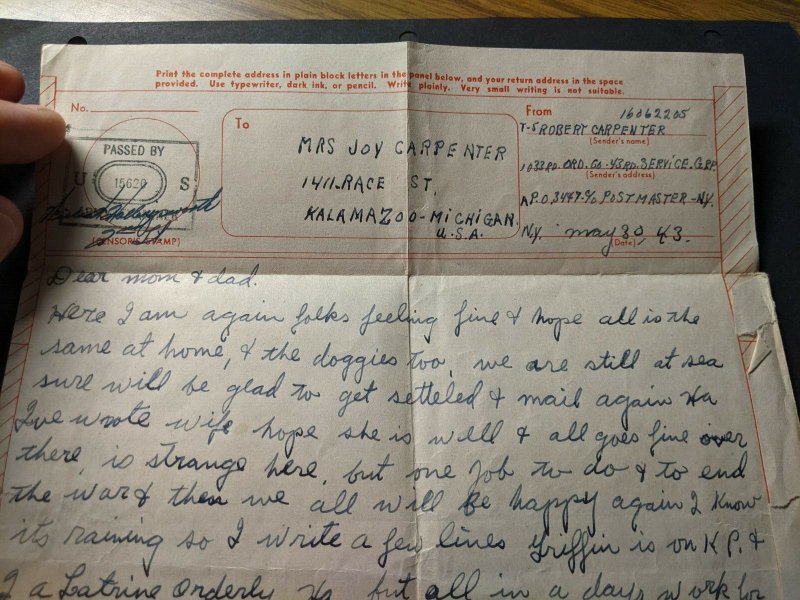 Print the complete address in plain block letters in the panel below, and your return address in the space
provided. Use typewriter, dark ink, or pencil. Write plainly. Very small writing is not suitable.
No.
PASSED BY
U 15620 S
(CENSOR'S STAMP)
To
MRS JOY CARPENTER
1411-RACE ST.
KALAMAZOO-MICHIGAN.
U.S.A.
From
16062205
T-5 ROBERT CARPENTER
(Sender's name)
1033RD. ORD. CO. 43RD. SERVICE. GRP.
(Sender's address)
A.P.O. 3447-% POSTMASTER-N.Y.
N.Y. may 30, 43.
(Date)
Dear mom & dad.
Here I am again folks feeling fine & hope all is the
same at home, & the doggies too, we are still at sea
sure will be glad to get setteled & mail again Ha
I've wrote wife hope she is well & all goes fine over
there, is strange here, but one job to do & to end
the war & then we all will be happy again I know
its raining so I write a few lines Griffin is on K.P. &
I a Latrine Orderly Ha but all in a days work for